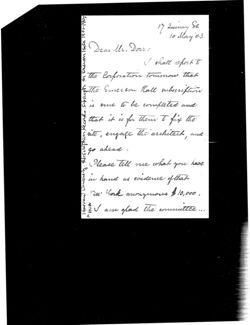 17 Quincy St
10 May 03
Dear Mr. Dorr:
I shall report to
the Corporation tomorrow that
the Emerson Hall subscription
is sure to be completed and
that it is for them to fix the
site, engage the architect, and
go ahead.
Please tell me what you have
in hand as evidence of that
New York anonymous $10,000.
I am afraid the committee...